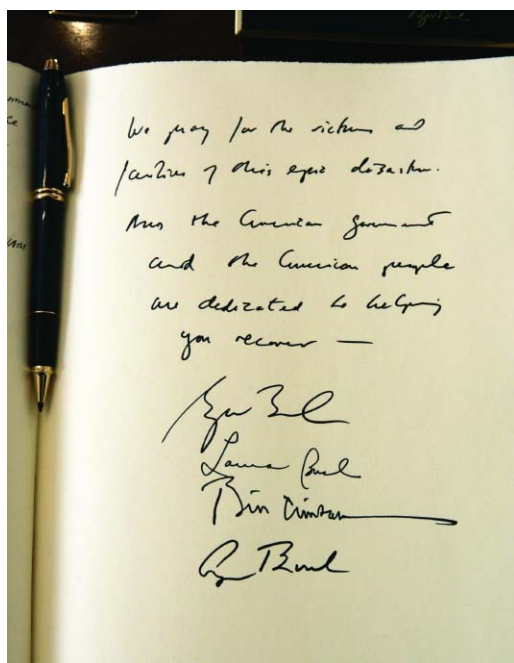 We pray for the victims and
families of this epic disaster.
the American government
and the American people
are dedicated to helping
you recover —
George Bush
Laura Bush
Bill Clinton
George Bush